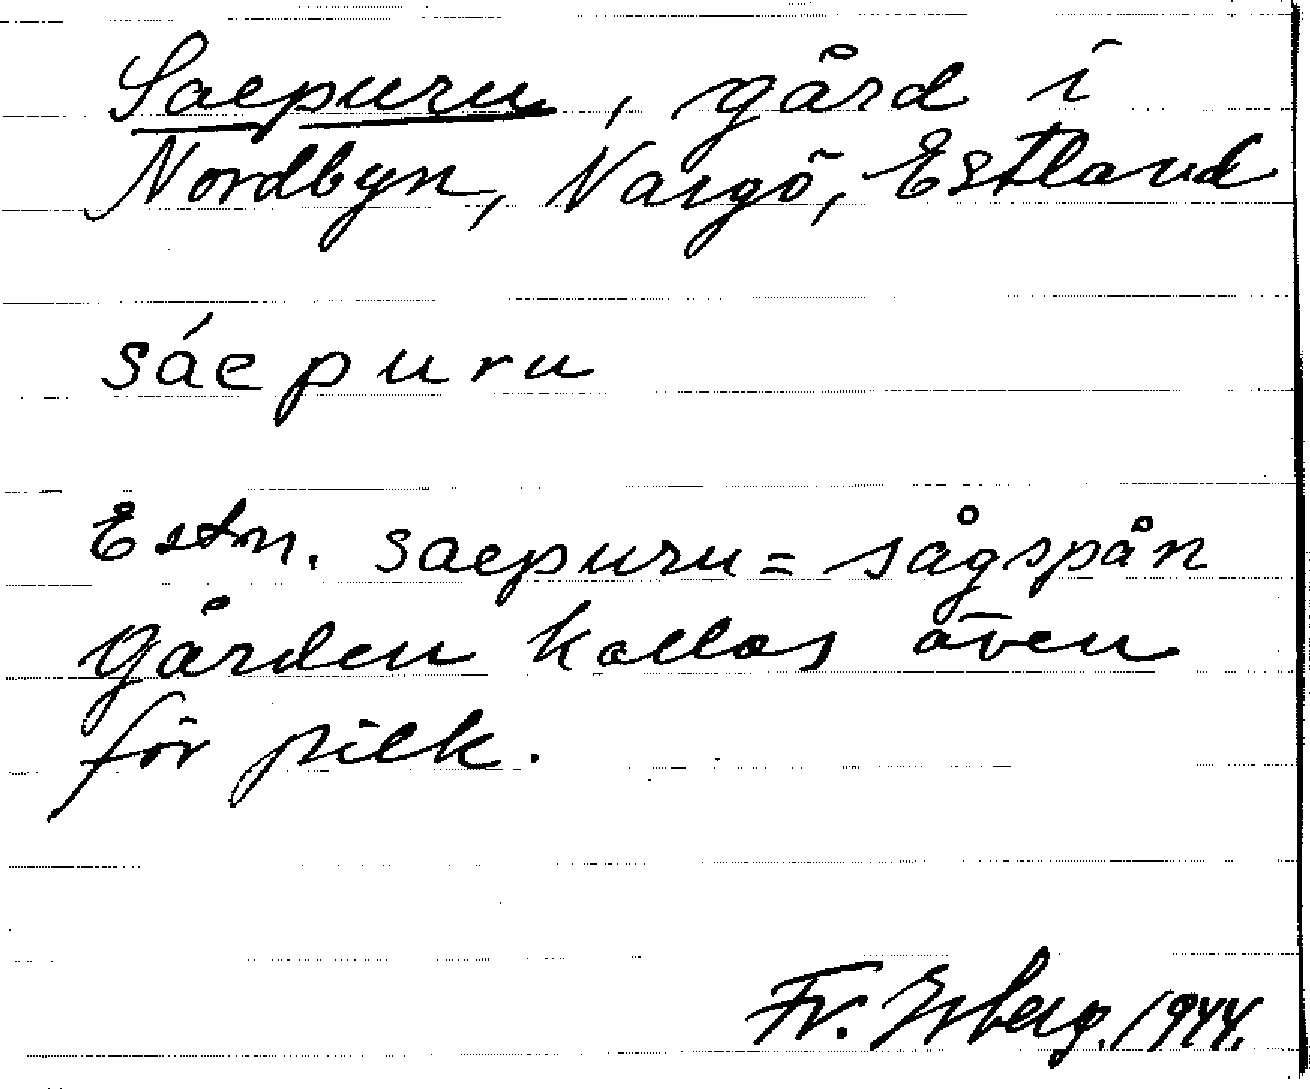 Saepuru, gård i
Nordbyn, Nargö, Estland
sáepuru
Estn. saepuru = sågspån
Gården kallas även
för pilk.
Fr. Isberg. 1944.